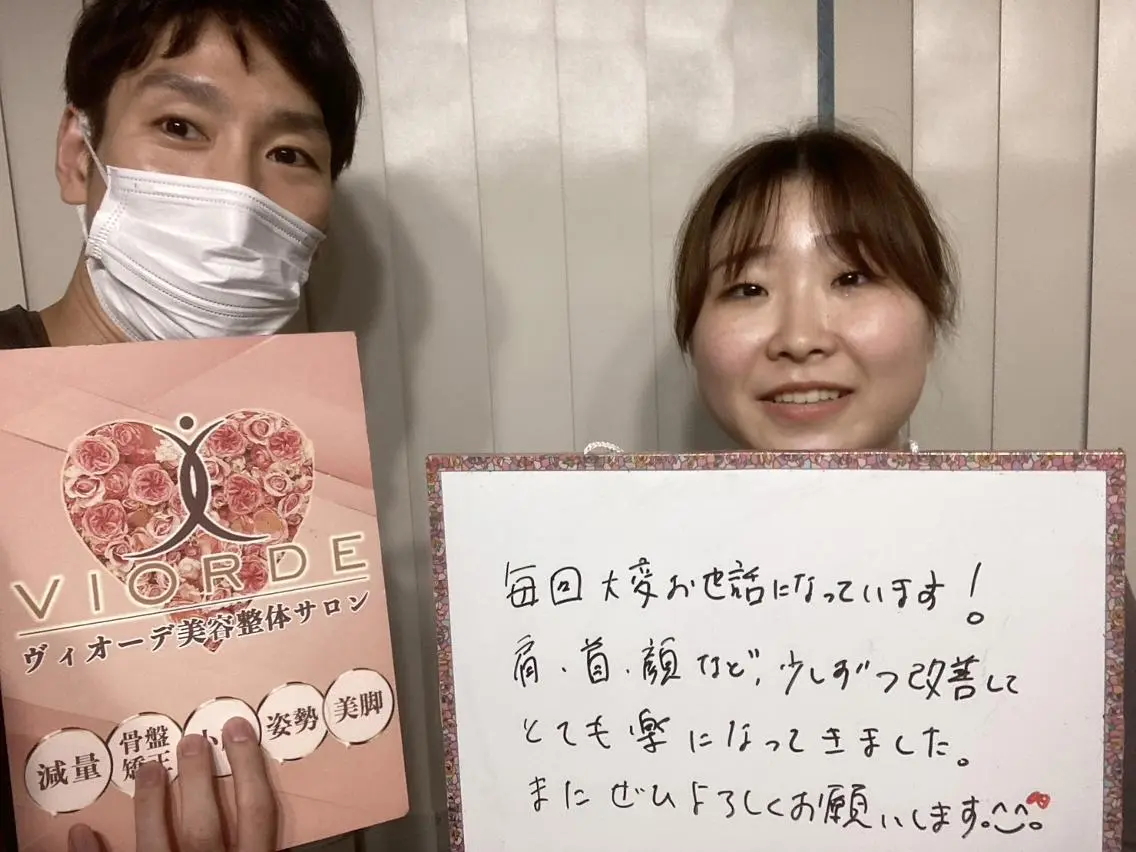 VIORDE
ヴィオーデ美容整体サロン
減量
骨盤
矯正
姿勢
美脚
毎回大変お世話になっています!
肩・首・顔など、少しずつ改善して
とても楽になってきました。
またぜひよろしくお願いします。^^